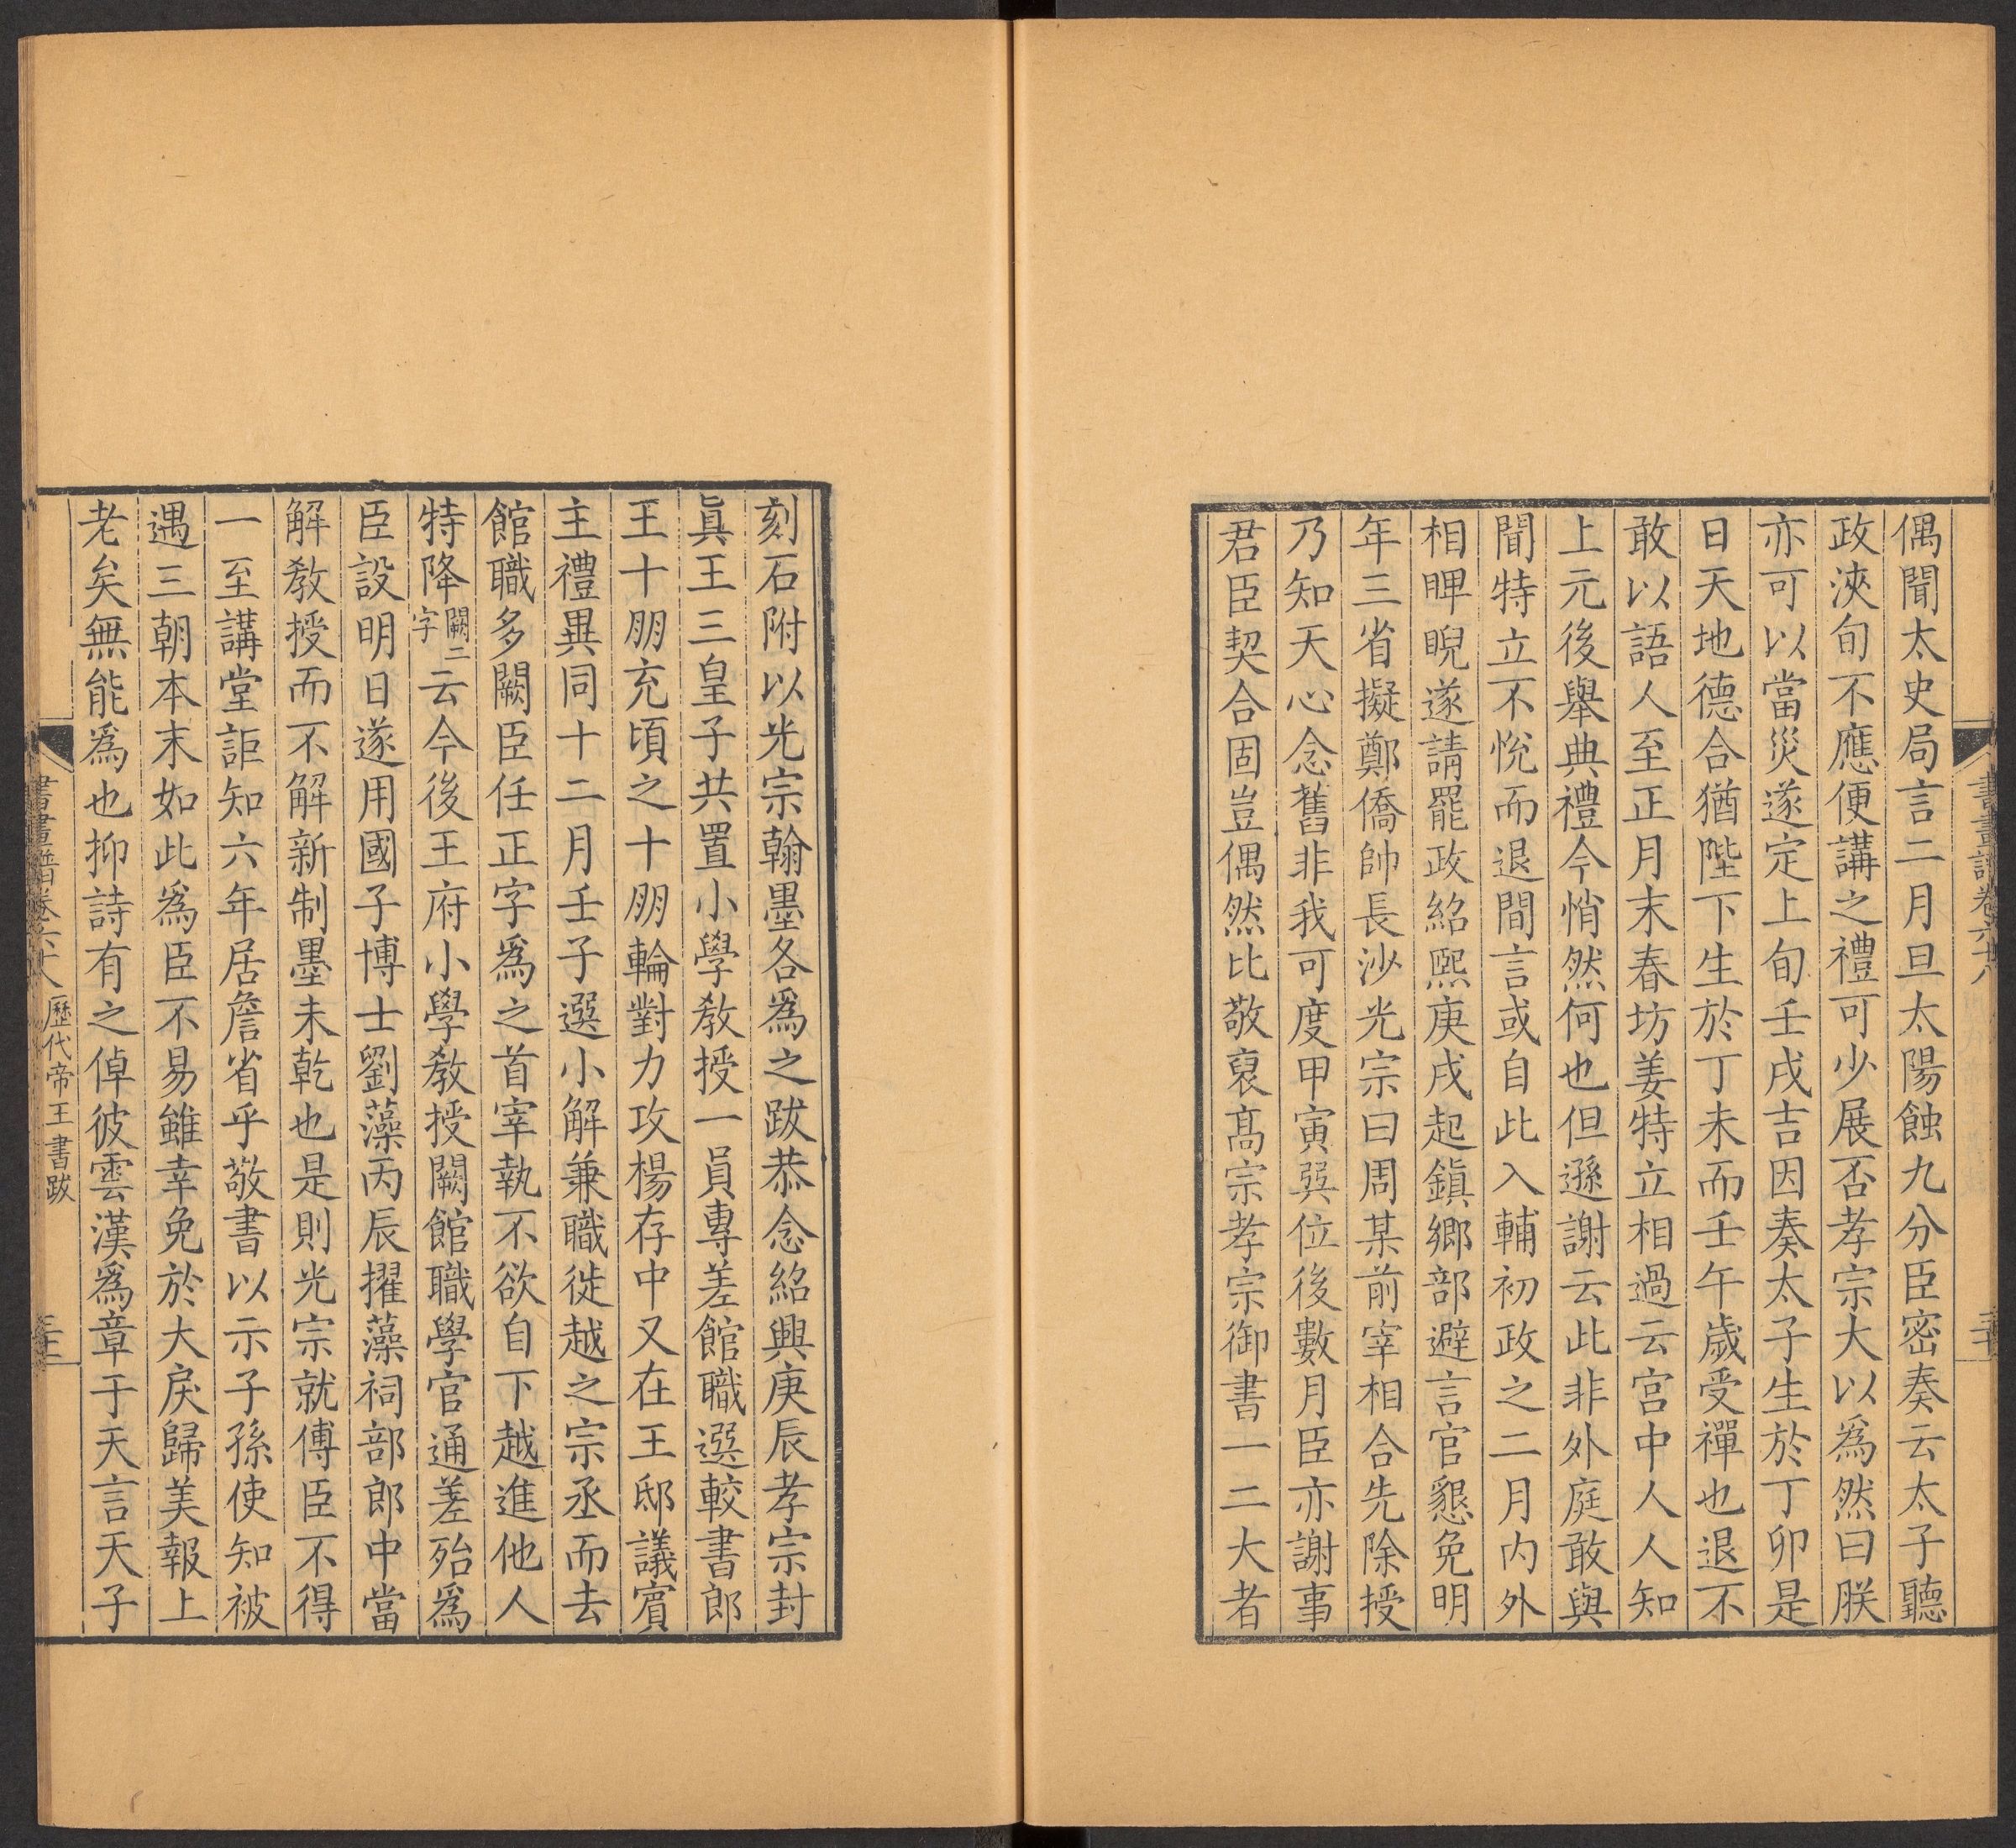 偶聞太史局言二月旦太陽蝕九分臣密奏云太子聽
政浹旬不應便講之禮可少展否孝宗大以爲然曰朕
亦可以當災遂定上旬壬戌吉因奏太子生於丁卯是
日天地德合猶陛下生於丁未而壬午歲受禪也退不
敢以語人至正月末春坊姜特立相過云宮中人人知
上元後舉典禮今悄然何也但遜謝云此非外庭敢與
聞特立不悅而退間言或自此入輔初政之二月内外
相睥睨遂請罷政紹熙庚戌起鎮鄉部避言官懇免明
年三省擬鄭僑帥長沙光宗曰周某前宰相合先除授
乃知天心念舊非我可度甲寅巽位後數月臣亦謝事
君臣契合固豈偶然比敬裒髙宗孝宗御書一二大者
書畫譜卷六十八
刻石附以光宗翰墨各爲之跋恭念紹興庚辰孝宗封
眞王三皇子共置小學敎授一員專差館職選較書郎
王十朋充頃之十朋輪對力攻楊存中又在王邸議賓
主禮異同十二月壬子選小解兼職徙越之宗丞而去
館職多闕臣任正字爲之首宰執不欲自下越進他人
特降闕二字云今後王府小學敎授闕館職學官通差殆爲
臣設明日遂用國子博士劉藻丙辰擢藻祠部郎中當
解敎授而不解新制墨未乾也是則光宗就傅臣不得
一至講堂詎知六年居詹省乎敬書以示子孫使知被
遇三朝本末如此爲臣不易雖幸免於大戾歸美報上
老矣無能爲也抑詩有之倬彼雲漢爲章于天言天子
書畫譜卷六十八 歷代帝王書跋